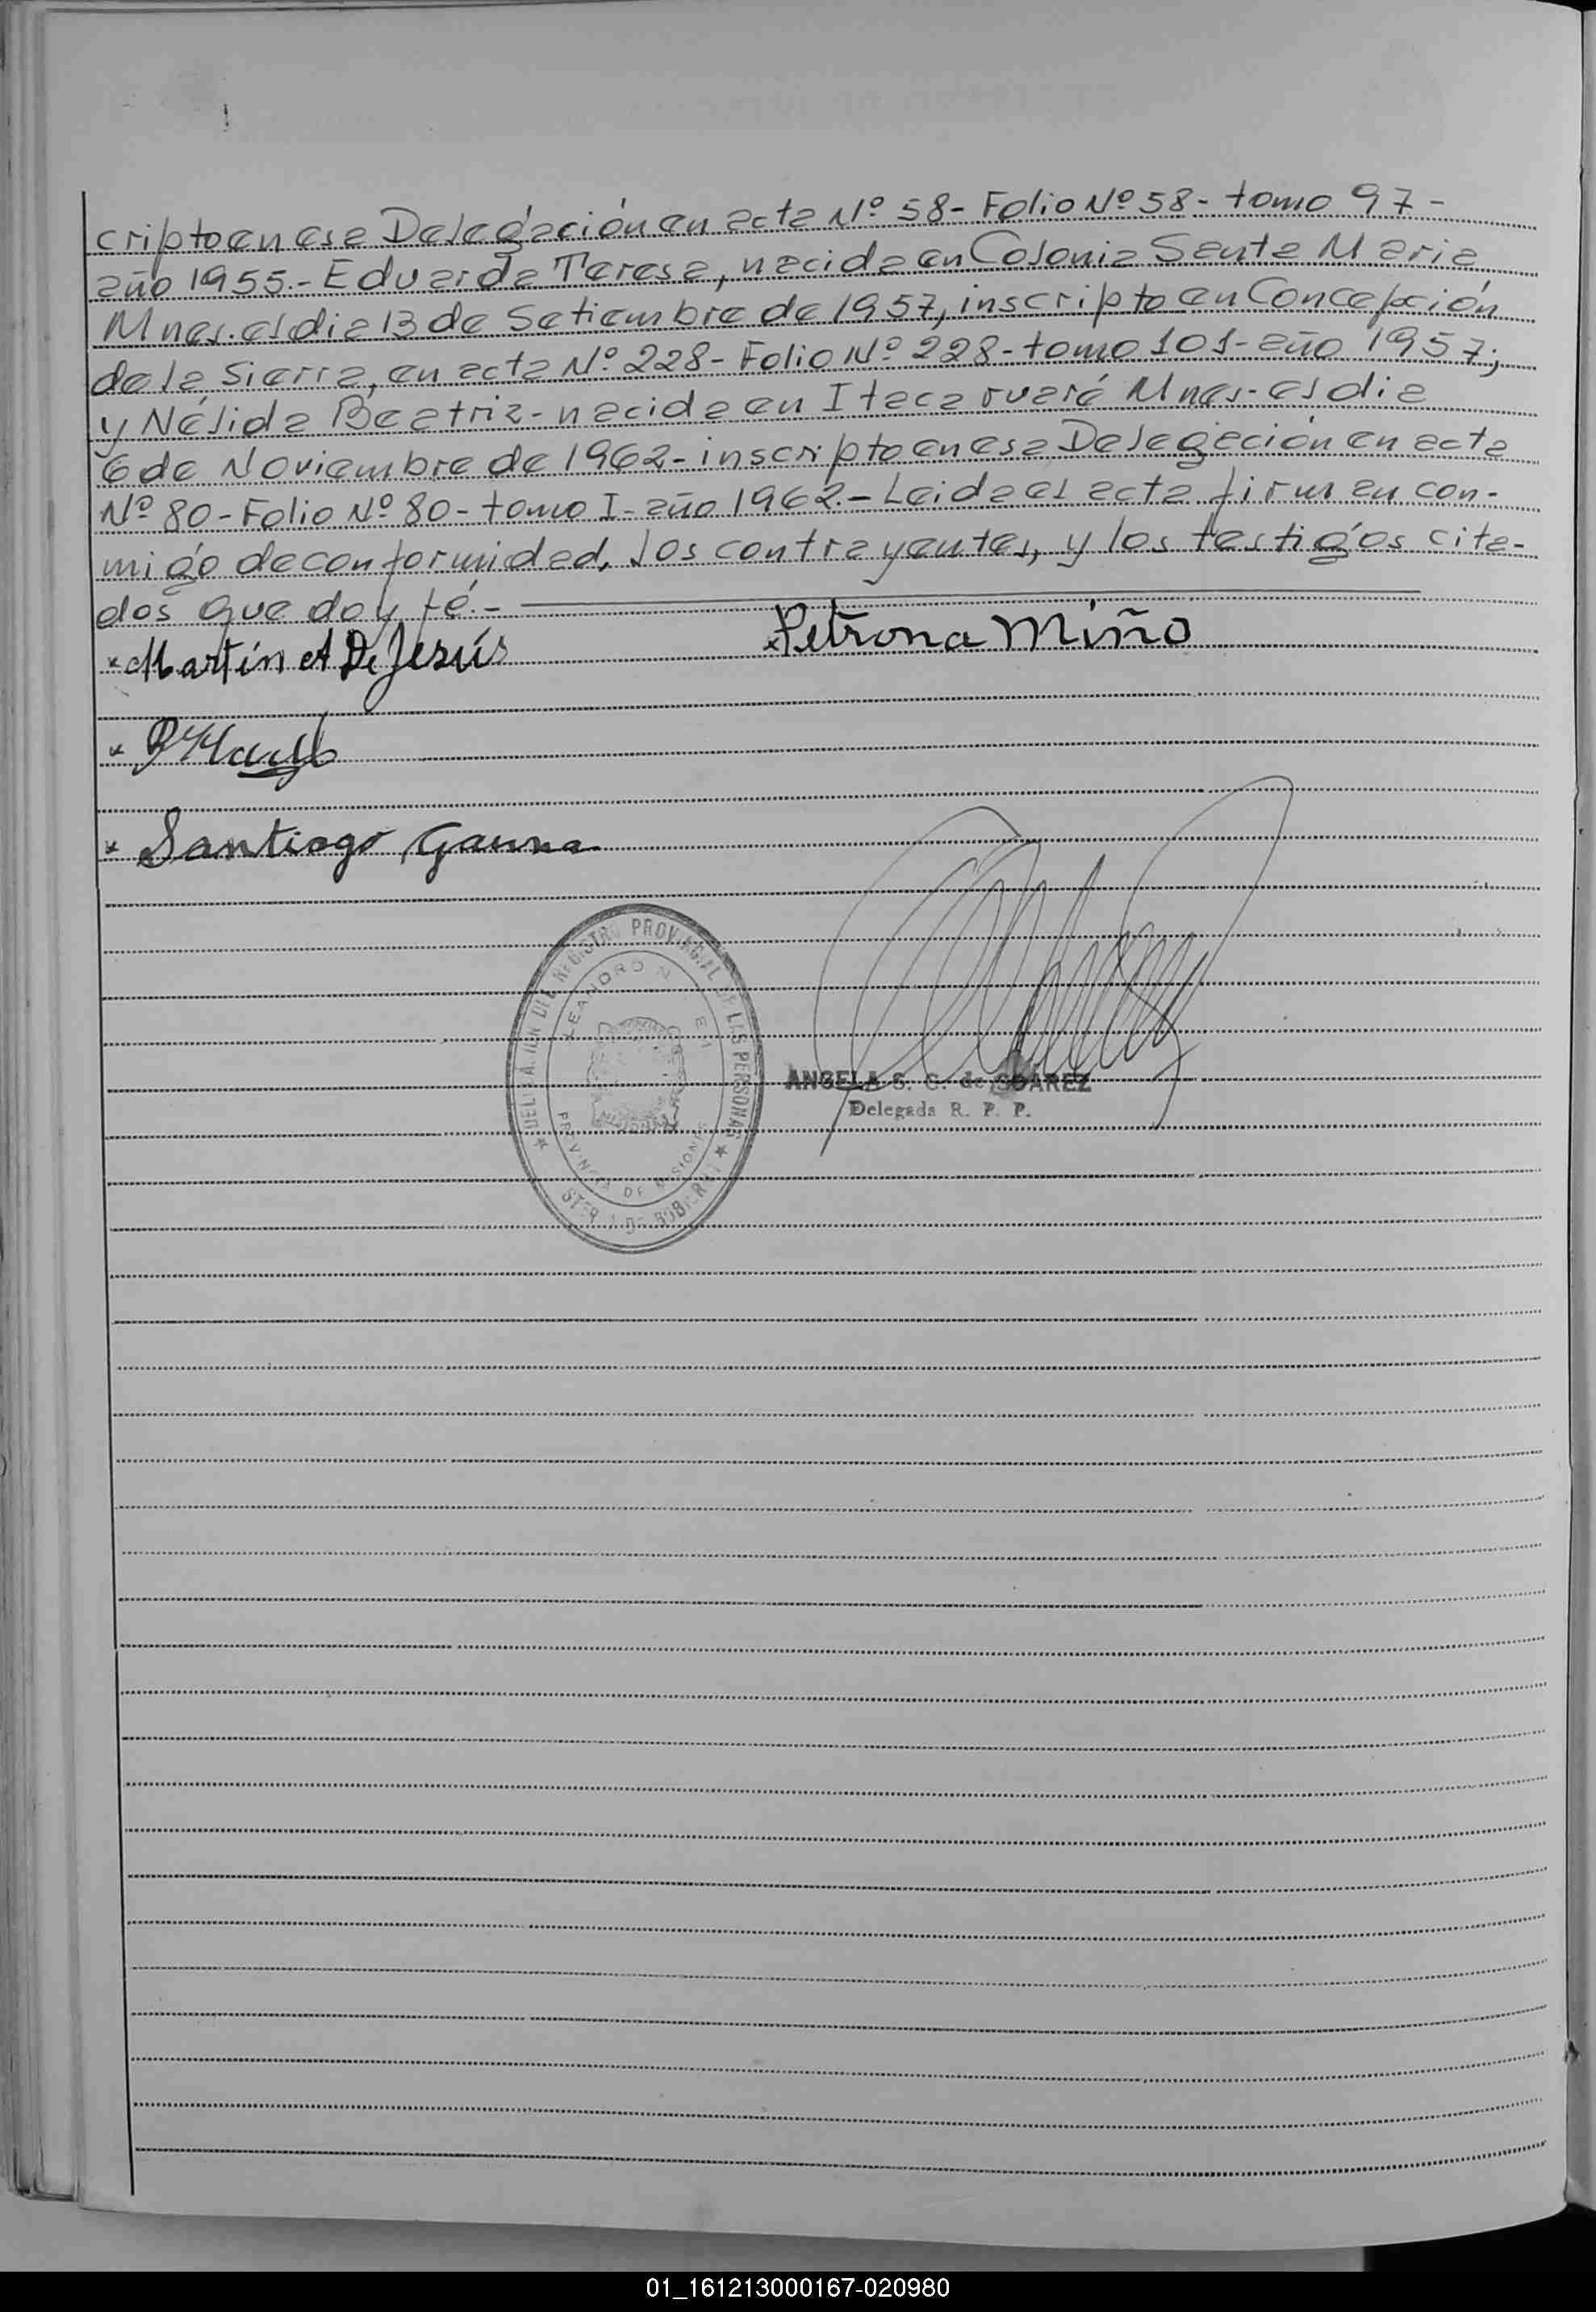 criptoenesa Delegación en acta Nº 58- Folio Nº 58- tomo 97-
año 1955.- Eduarda Teresa, nacida en Colonia Santa Maria
Mnes. el dia 13 de Setiembre de 1957, inscripto en Concepción
de la Sierra, en acta Nº 228- Folio Nº 228- tomo 101- año 1957;
y Nélida Beatriz- nacida en Itacaruaré Mnes- el dia
6 de Noviembre de 1962- inscripto en esa Delegación en acta
Nº 80- Folio Nº 80- tomo I- año 1962.- Leida el acta firman con-
migo de conformidad, los contrayentes, y los testigos cita-
dos que doy fé.-
Martín A De Jesús
Petrona Miño
Santiago Gauna
REGISTRO PROVINCIAL DE LAS PERSONAS
LEANDRO N.
PROVINCIA DE MISIONES
ANGELA S. C. de SUAREZ
Delegada R. P. P.
01_161213000167-020980